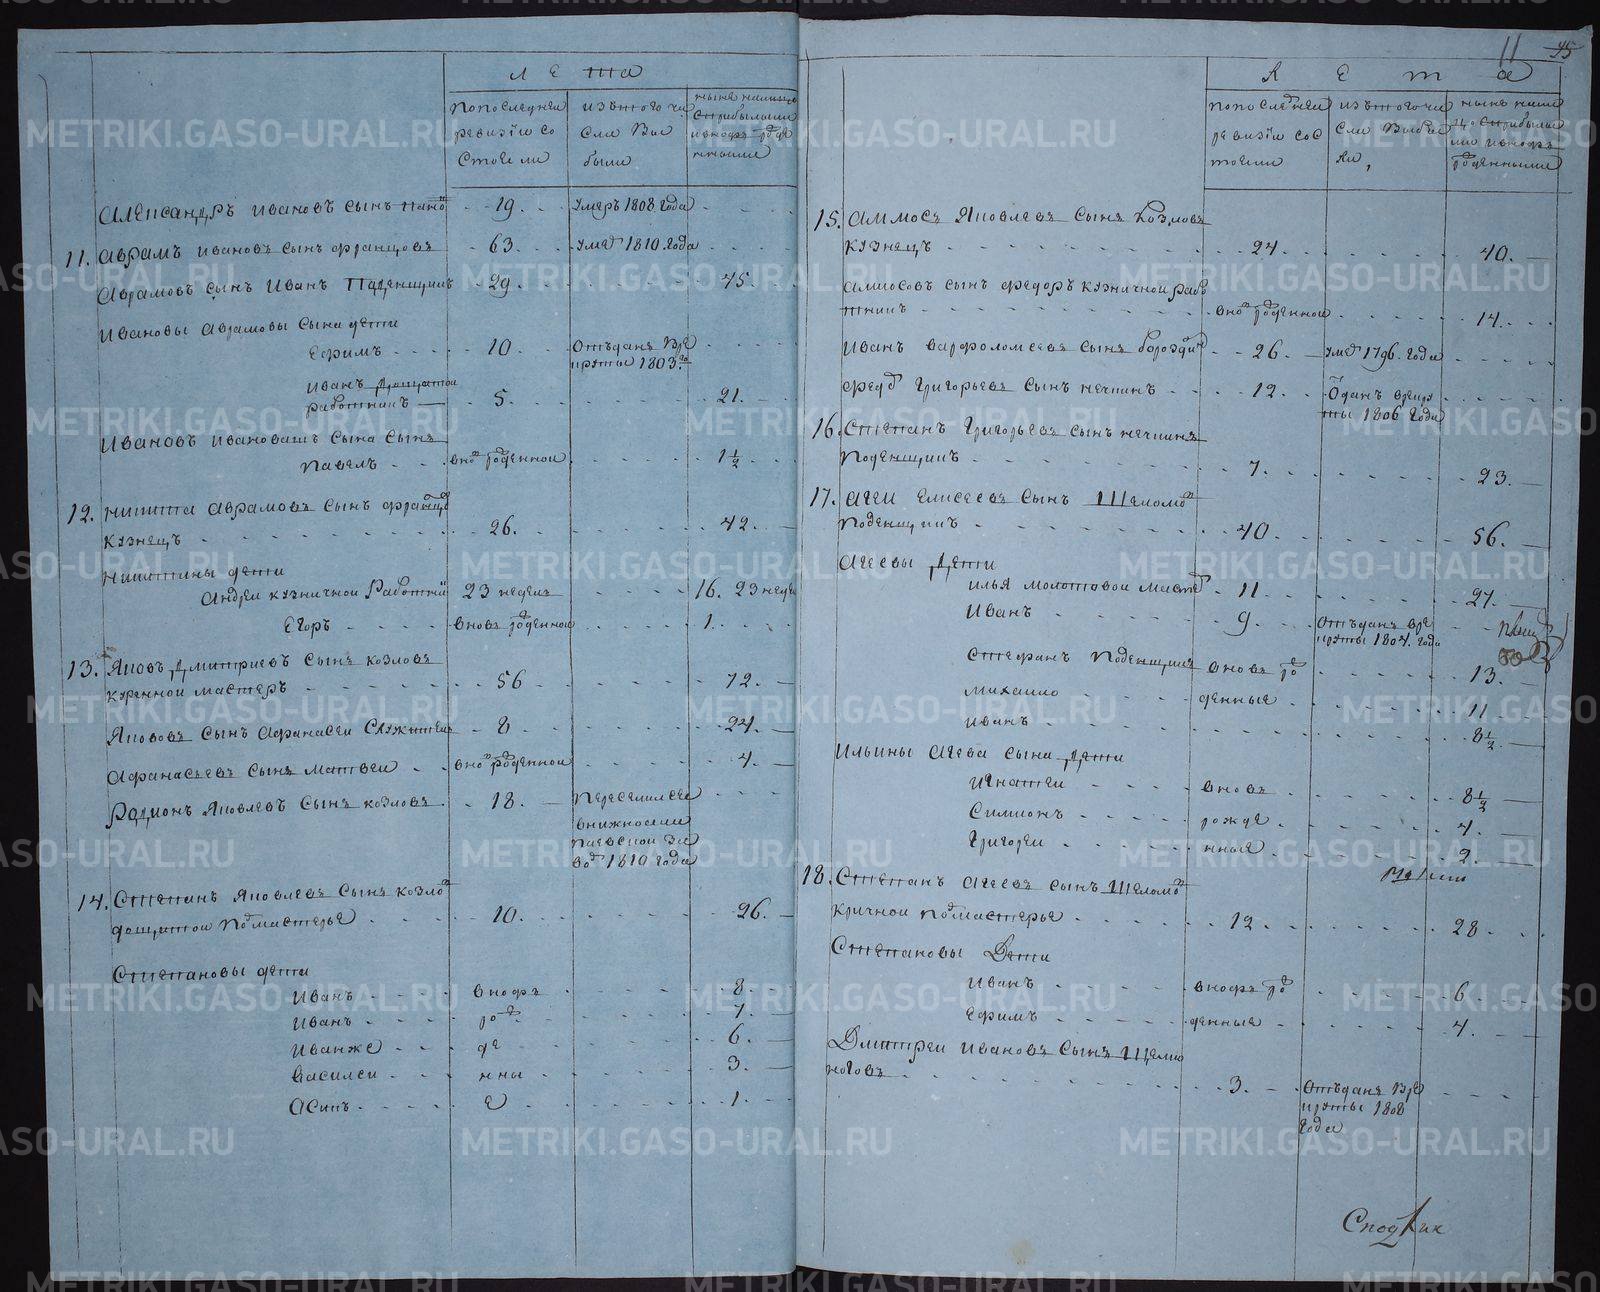 Лета
По последней
ревизiи со
стояли
Из того чи
сла вы
были
ныне налицо
с прибылыми
и вновь рожде
нными
Александръ Ивановъ сынъ 19. умеръ 1808 года
11. Аврамъ Ивановъ сынъ Францовъ 63. умеръ 1810 года
Аврамовъ сынъ Иванъ Паденщикъ 29. 45.
Ивановы Аврамовы сына дети
Ефимъ 10 отъданъ в ре
круты 1803 го
Иванъ дощатой
работникъ 5. 21.
Ивановъ сына сынъ
Павелъ вновь рожденной 1 1/2
12. Никита Аврамовъ сынъ Францовъ
кузнецъ 26. 42.
Никитины дети
Андрей кузничной работник 23 недели 16. 23 неде
Егоръ вновь рожденной 1.
13. Яковъ Дмитриевъ сынъ Козловъ
куренной мастеръ 56 72.
Яковъ сынъ Афанасей служитель 8 24.
Афанасьевъ сынъ Матвей вновь рожденной 4.
Радионъ Яковлевъ сынъ Козловъ 18. Переселился
в Нижноисе
вод 1810 года
14. Степанъ Яковлевъ сынъ Козлов
дощатой подмастерье 10. 26.
Степановы дети
Иванъ вновь 8.
Иванъ ро 7.
Иван же де 6.
Василей нны 3.
Осипъ е 1.
11 45
Лета
По последней
ревизiи сос
тояли
Из того чи
сла выбы
ли,
ныне нали
цо с прибылы
ми и вновь
рожденными
15. Аммосъ Яковлевъ сынъ Козловъ
кузнецъ 24. 40.
Аммосовъ сынъ Федоръ кузничной рабо
тникъ вновь рожденной 14.
Иванъ Варфоломеевъ сынъ 26. умер 1796. года
Федоръ Григорьевъ сынъ Нечкинъ 12. Отданъ в рекру
ты 1806 года
16. Степанъ Григорьевъ сынъ Нечкинъ
Поденщикъ 7. 23.
17. Агей Елисеевъ сынъ Шеломов
поденщикъ 40. 56.
Агеевы дети
Илья молотовой мастер 11 27.
Иванъ 9. отъданъ в ре
круты 1804. года
Стефанъ поденщикъ вновь ро 13.
Михайло жденные 11
Иванъ 8 1/2
Ильины Агеева сына дети
Игнатей вновь 8 1/2
Симионъ рожде 4.
Григорей нные 2.
18. Степанъ Агеевъ сынъ Шеломов
кричной подмастерье 12. 28.
Степановы дети
Иванъ вновь ро 6.
Ефимъ жденные 4.
Дмитрей Ивановъ сынъ
ноговъ 3. отъданъ в ре
круты 1808
года
METRIKI.GASO-URAL.RU